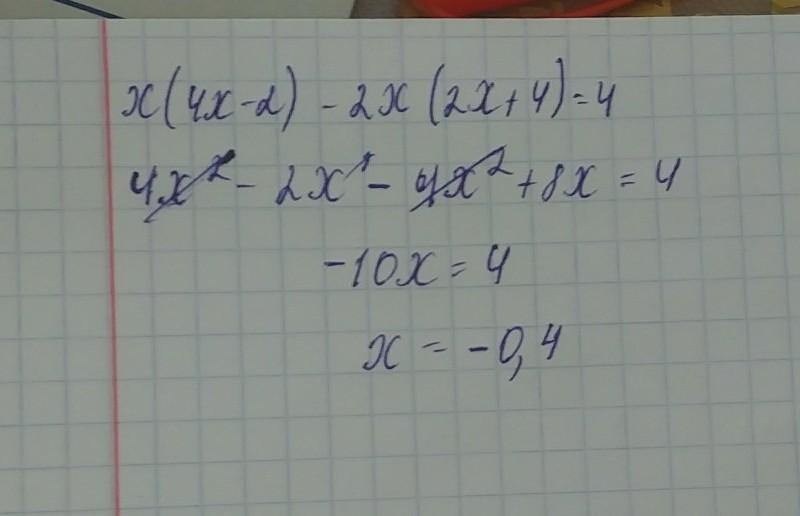 x(4x-2) - 2x(2x+4)=4
4x² - 2x - 4x² + 8x = 4
-10x = 4
x = -0,4